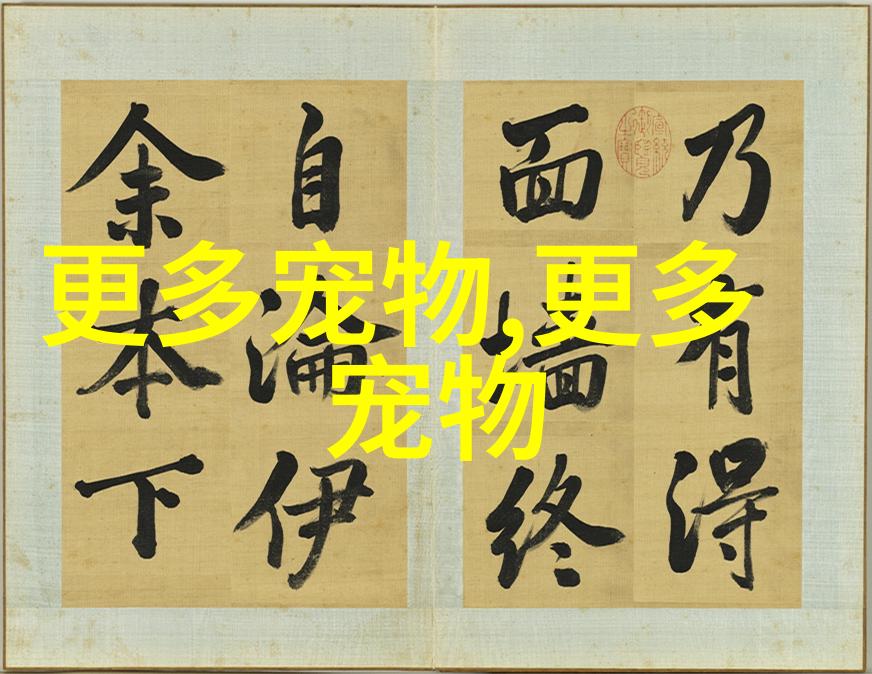 更多宠物,更多
宠物
乃有得
面墙终
自淪伊
余本下